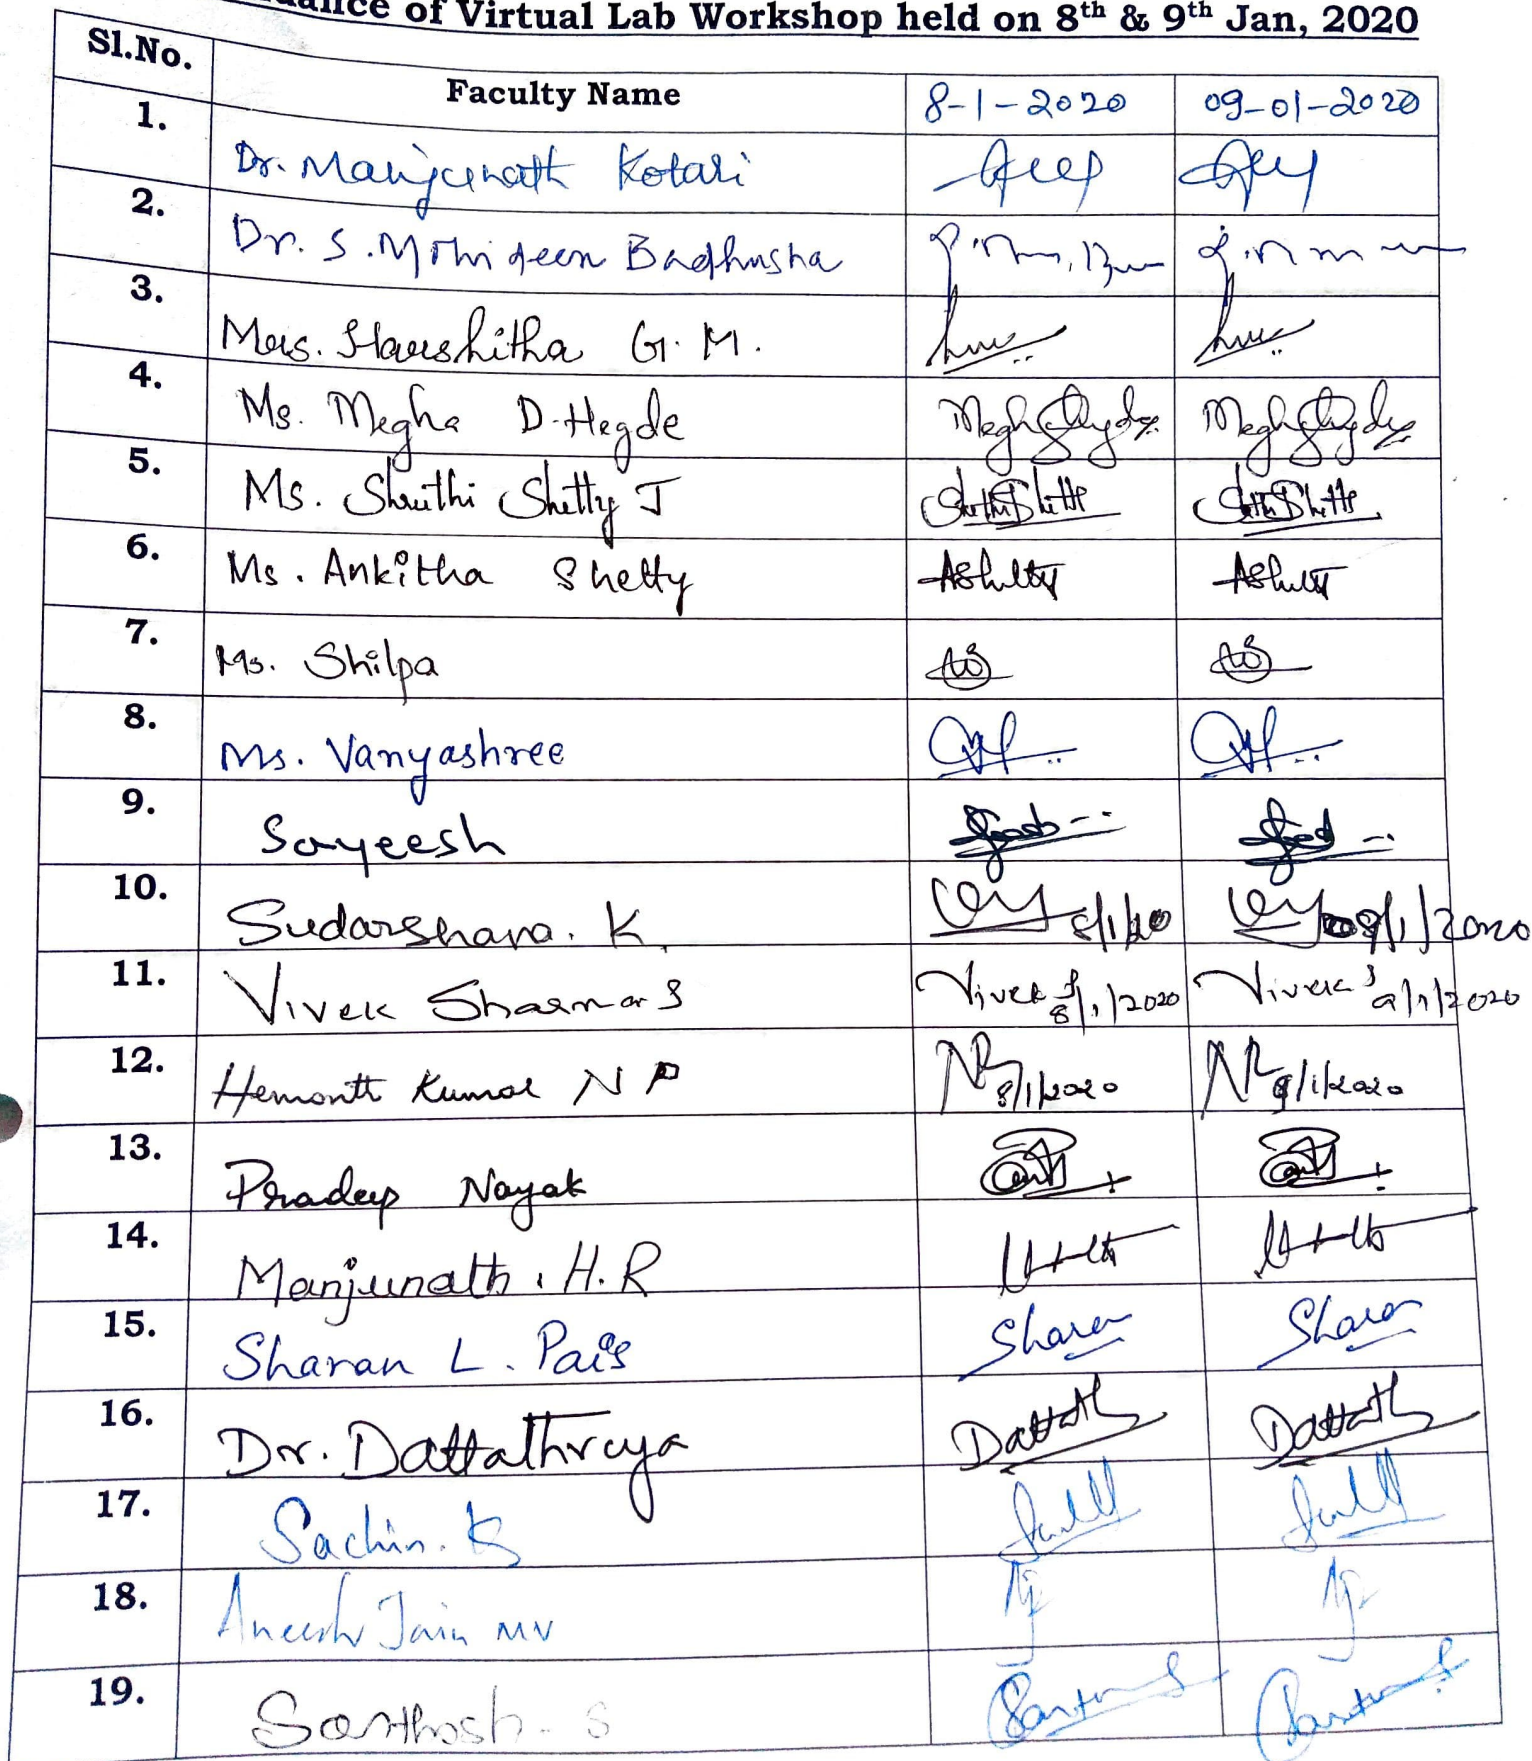 of Virtual Lab Workshop held on 8th & 9th Jan, 2020
Sl.No. Faculty Name 8-1-2020 09-01-2020
1. Dr. Manjunath Kotari
2. Dr. S. Mohideen Badhusha
3. Mrs. Harshitha G. M.
4. Ms. Megha D. Hegde
5. Ms. Shruthi Shetty J
6. Ms. Ankitha Shetty AShetty AShetty
7. Ms. Shilpa
8. Ms. Vanyashree
9. Sayeesh
10. Sudarshana. K 8/1/20 09/1/2020
11. Vivek Sharma S Vivek S 8/1/2020 Vivek S 9/1/2020
12. Hemanth Kumar N P 8/1/2020 9/1/2020
13. Pradeep Nayak
14. Manjunath. H.R
15. Sharan L. Pais Sharan Sharan
16. Dr. Dattathreya Dattath Dattath
17. Sachin. K
18. Aneesh Jain MV
19. Santhosh. S